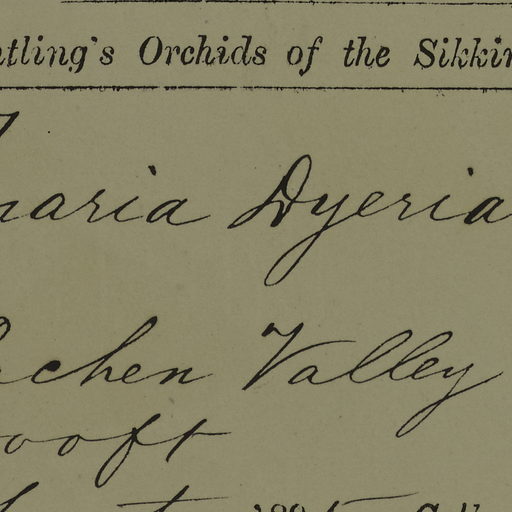 ntling's Orchids of the Sikkim
naria Dyeria
achen Valley
000ft